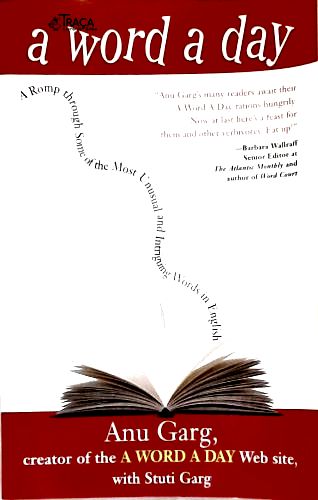 TRACA
a word a day
A Romp through Some of the Most Unusual and Intriguing Words in English
"Anu Garg's many readers await their
A Word A Day rations hungrily.
Now at last here's a feast for
them and other verbivores. Eat up!"
—Barbara Wallraff
Senior Editor at
The Atlantic Monthly and
author of Word Court
Anu Garg,
creator of the A WORD A DAY Web site,
with Stuti Garg